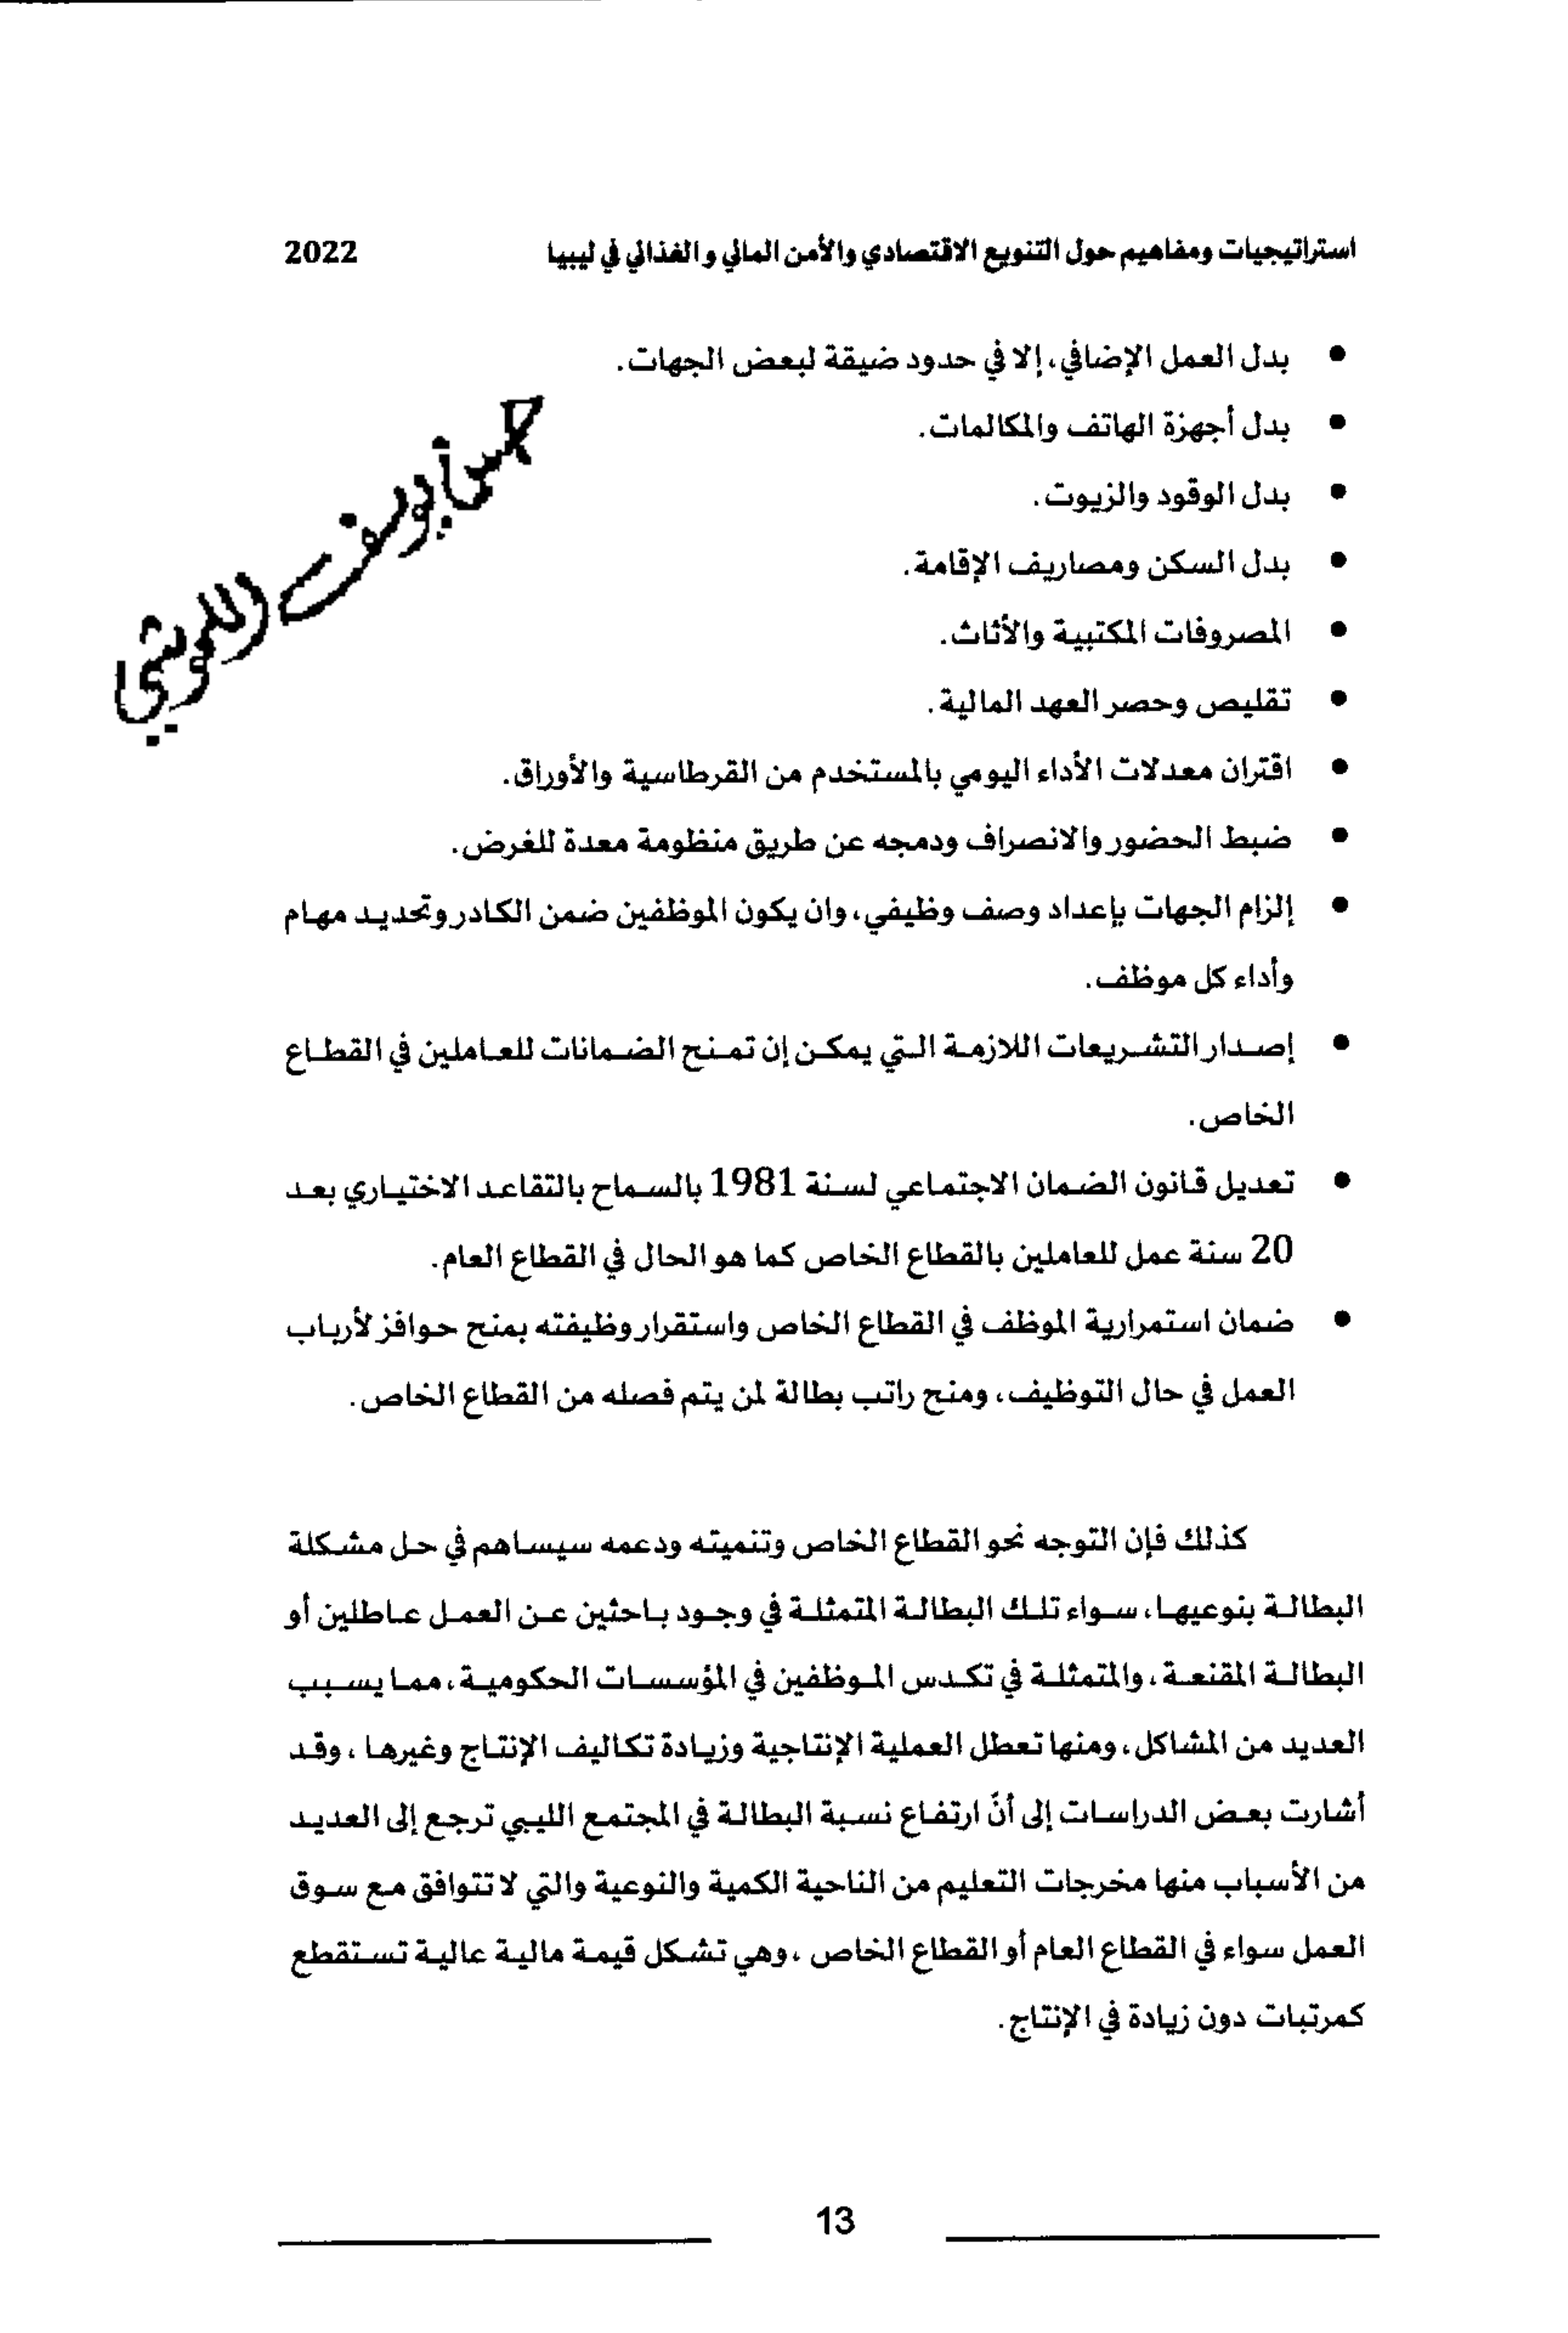 استراتيجيات ومفاهيم حول التنويع الاقتصادي والأمن المالي والغذائي في ليبيا 2022
• بدل العمل الإضافي، إلا في حدود ضيقة لبعض الجهات.
• بدل أجهزة الهاتف والمكالمات.
• بدل الوقود والزيوت.
• بدل السكن ومصاريف الإقامة.
• المصروفات المكتبية والأثاث.
• تقليص وحصر العهد المالية.
• اقتران معدلات الأداء اليومي بالمستخدم من القرطاسية والأوراق.
• ضبط الحضور والانصراف ودمجه عن طريق منظومة معدة للغرض.
• إلزام الجهات بإعداد وصف وظيفي، وان يكون الموظفين ضمن الكادر وتحديد مهام
وأداء كل موظف.
• إصدار التشريعات اللازمة التي يمكن إن تمنح الضمانات للعاملين في القطاع
الخاص.
• تعديل قانون الضمان الاجتماعي لسنة 1981 بالسماح بالتقاعد الاختياري بعد
20 سنة عمل للعاملين بالقطاع الخاص كما هو الحال في القطاع العام.
• ضمان استمرارية الموظف في القطاع الخاص واستقرار وظيفته بمنح حوافز لأرباب
العمل في حال التوظيف، ومنح راتب بطالة لمن يتم فصله من القطاع الخاص.
كذلك فإن التوجه نحو القطاع الخاص وتنميته ودعمه سيساهم في حل مشكلة
البطالة بنوعيها، سواء تلك البطالة المتمثلة في وجود باحثين عن العمل عاطلين أو
البطالة المقنعة، والمتمثلة في تكدس الموظفين في المؤسسات الحكومية، مما يسبب
العديد من المشاكل، ومنها تعطل العملية الإنتاجية وزيادة تكاليف الإنتاج وغيرها ، وقد
أشارت بعض الدراسات إلى أنّ ارتفاع نسبة البطالة في المجتمع الليبي ترجع إلى العديد
من الأسباب منها مخرجات التعليم من الناحية الكمية والنوعية والتي لا تتوافق مع سوق
العمل سواء في القطاع العام أو القطاع الخاص ، وهي تشكل قيمة مالية عالية تستقطع
كمرتبات دون زيادة في الإنتاج.
13